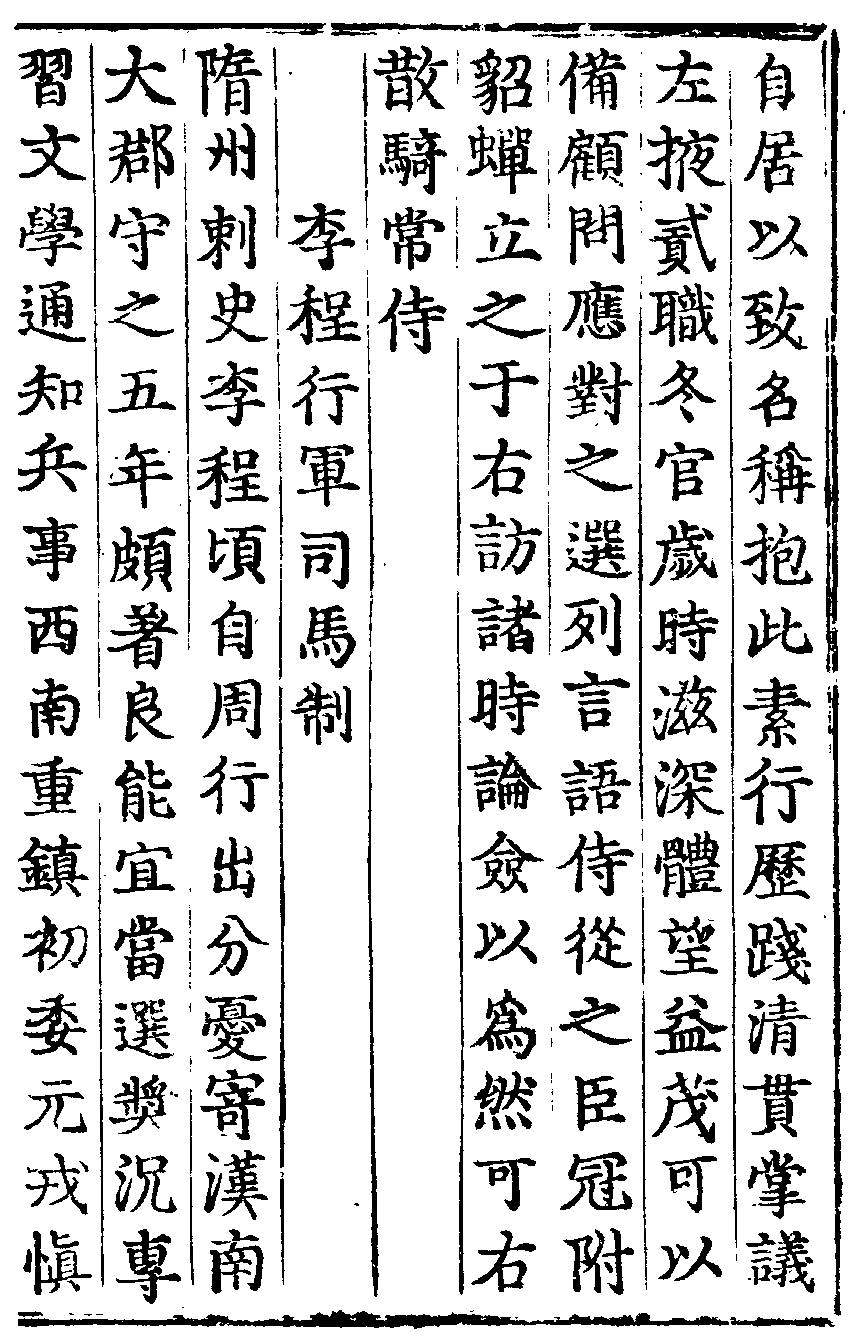 自居以致名稱抱此素行歷踐清貫掌議
左掖貳職冬官歲時滋深體望益茂可以
備顧問應對之選列言語侍從之臣冠附
貂蟬立之于右訪諸時論僉以爲然可右
散騎常侍
李程行軍司馬制
隋州刺史李程頃自周行出分憂寄漢南
大郡守之五年頗著良能宜當選奬況專
習文學通知兵事西南重鎮初委元戎愼